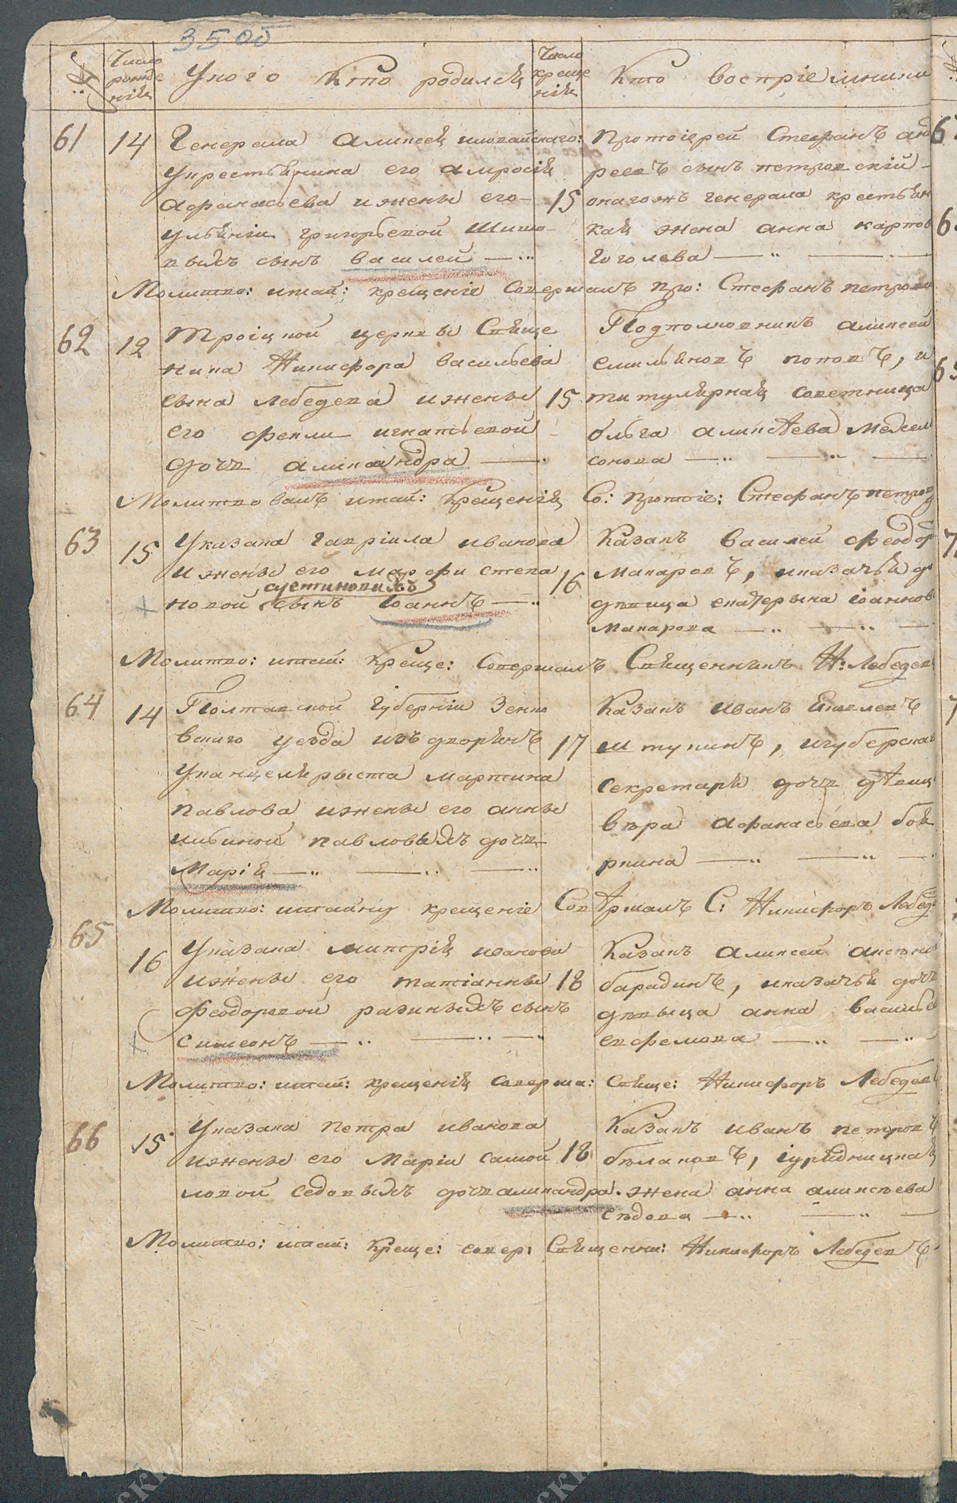 3500
№ Число рожденія У кого кто родился Число крещенія Кто воспріемники
61 14 Генерала Алексея Иловайскаго:
у крестьянина его Амросія
Афанасьева и жены его
Ульяніи Григорьевой Шишо-
выхъ сынъ Василей
15 Протоіерей Стефанъ Анд
реевъ сынъ Петровскій
онагожъ генерала крестьян
ская жена Анна Карпов
Гоголева
Молитво: и тай: крещеніе совершалъ про: Стефанъ Петровс
62 12 Троицкой церкви Свяще
ника Никифора Васильева
сына Лебедева и жены
его Феклы Игнатьевой
дочь Александра
15 Подполковникъ Алексей
Емельяновъ Поповъ, и
титулярная советница
Ольга Алексѣева
Молитвовалъ и тай: крещенія Со: протоіе: Стефанъ Петров
63 15 У казака Гавріила Иванова
и жены его Марфы Степа
новой сынъ Іоаннъ
Сустиновыхъ
16 Казакъ Василей Феодор
Макаровъ, и казачья д
дѣвица Екатерына Іоаннов
Макарова
Молитво: и тай: креще: совершалъ Священникъ Н: Лебедев
64 14 Полтавской Губерніи Зенко
вскаго уезда изъ дворянъ
у канцелярыста Мартина
Павлова и жены его Анны
Павловыхъ дочь
Марія
17 Казакъ Иванъ
Штукинъ, и губернска
секретаря дочь дѣвиц
Вѣра Афанасьева Боя
ркина
Молитво: и тайну крещеніе совѣршалъ С: Никифоръ Лебед
65 16 У казака Дмитрія Иванова
и жены его Татіанны
Феодоровой Разиныхъ сынъ
Симеонъ
18 Казакъ Алексей
Барадинъ, и казачья дочь
дѣвыца Анна Василье
Ефремова
Молитво: и тай: крещенія соверша: Свяще: Никифоръ Лебедевъ
66 15 У казака Петра Иванова
и жены его Маріи Самой
ловой Седовыхъ дочь Александра.
18 Казакъ Иванъ Петровъ
Бѣлаковъ, и урядницкая
жена Анна Алексѣева
Сѣдова
Молитво: и тай: креще: совер: Священни: Никифоръ Лебедевъ